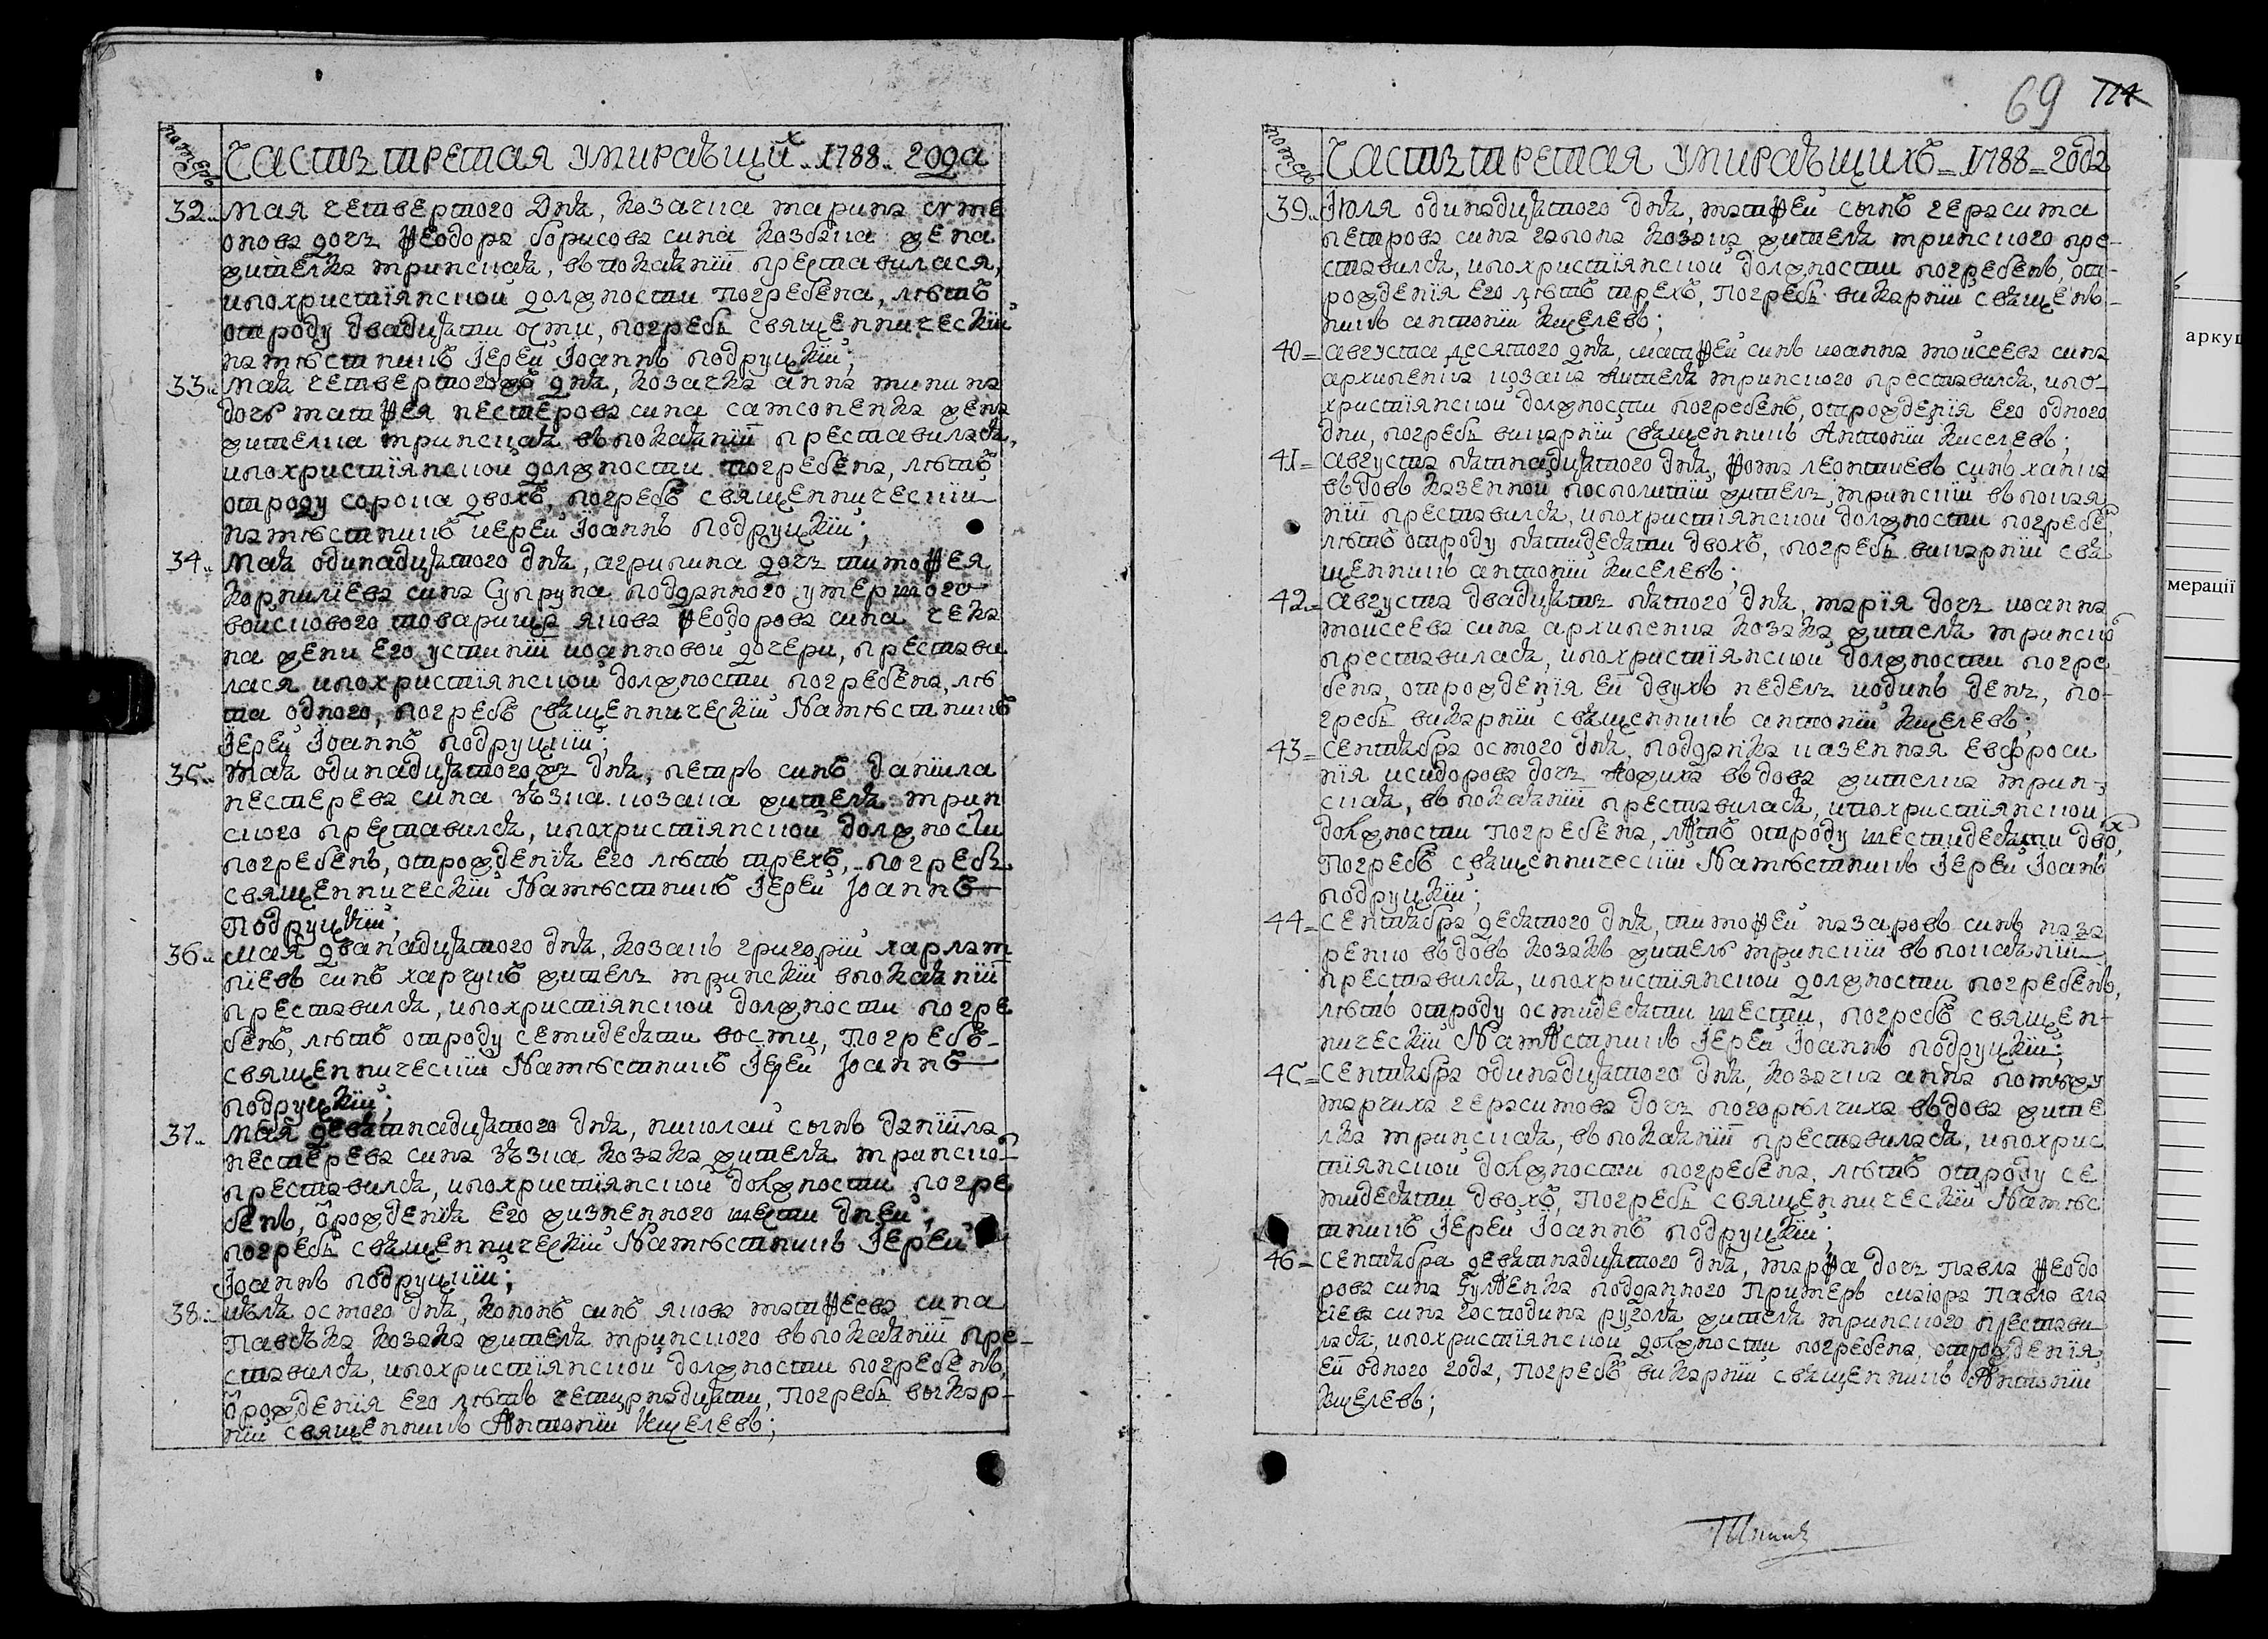 номеръ
Часть третая умирающих 1788 года
32. мая четвертого дня, козачка марина симе
онова дочь Ѳеодора борисова сина козбана жена
жителка трипская, въ покаянїи преставилася,
и по христїянской должности погребена, лѣтъ
отроду двадцяти осми, погребъ священническїй
намѣстникъ їерей Їоаннъ подруцкїй;
33. мая четвертогожъ дня, козачка анна минина
дочь матѳея нестерова сина самсоненка жена
жителка трипская въ покаянїи преставилася,
и по христїянской должности погребена, лѣтъ
отроду сорока двохъ, погребъ священническїй
намѣстникъ иерей Їоаннъ подруцкїй;
34. мая одинадцятого дня, агрипина дочь тимоѲея
корнилїева сина Супруна подданного умершого
войскового товарища якова Ѳеодорова сина чека
на жени его устинїи иоанновой дочери, престави
лася и по христїянской должности погребена, лѣ
та одного, погребъ священническїй Намѣстникъ
Їерей Їоаннъ подруцкїй;
35. мая одинадцятогожъ дня, петръ синъ данїила
нестерева сина зѣзка козака жителя трип
ского преставился, и по христїянской должности
погребенъ, отрожденїя его лѣтъ трехъ, погребъ
священническїй Намѣстникъ Їерей Їоаннъ
Подруцкїй;
36. мая дванадцятого дня, козакъ григорїй харлам
пїевъ синъ харчукъ житель трипскїй въ покаянїи
преставился, и по христїянской должности погре
бенъ, лѣтъ отроду семидесяти восми, погребъ
священническїй Намѣстникъ Їерей Їоаннъ
подруцкїй;
37. мая девятнадцятого дня, николай сынъ данїила
нестерева сина зѣзка козака жителя трипско
преставился, и по христїянской должности погре
бенъ, ѿрожденїя его жизненного шести дней;
погребъ священническїй Намѣстникъ Їерей
Їоаннъ подруцкїй;
38. июля осмого дня, кононъ синъ якова матѲеева сина
павлѣка козака жителя трипского въ покаянїи пре-
ставился, и по христїянской должности погребенъ,
ѿрожденїя его лѣтъ четирнадцяти, погребъ викар-
нїй священникъ Антонїй Кщелевъ;
69
114
номеръ
Часть третая умирающихъ 1788 года
39. Їюля одинадцятого дня, матѲей сынъ герасима
петрова сина гапона козака жителя трипского пре-
ставился, и по христїянской должности погребенъ, от-
рожденїя его лѣтъ трехъ, погребъ викарнїй священ-
никъ антонїй кщелевъ;
40 августа десятого дня, матѲей синъ иоанна мойсеева сина
архипенка козака жителя трипского преставился, и по-
христїянской должности погребенъ, отрожденїя его одного
дни, погребъ викарнїй священникъ Антонїй киселевъ;
41 августа пятнадцятого дня, Ѳома леонтиевъ синъ хапка
въдовъ казенной посполитїй житель трипскїй въ покая
нїи преставился, и по христїянской должности погребе,
лѣтъ отроду пятидесяти двохъ, погребъ викарнїй свя
щенникъ антонїй киселевъ;
42. августа двадцять пятого дня, марїя дочь иоанна
моисеева сина архипенка козака жителя трипско
преставилася, и по христїянской должности погре
бена, отрожденїя ей двухъ недель и одинъ день, по-
гребъ викарнїй священникъ антонїй кщелевъ;
43 сентября осмого дня, подданка казенная евфроси
нїя исидорова дочь въдова жителка трип-
ская, въ покаянїи преставилася, и по христїянской
должности погребена, лѣтъ отроду шестидесяти двох,
погребъ священническїй Намѣстникъ Їерей Їоанъ
подруцкїй;
44 сентября десятого дня, тимоѲей назаровъ синъ наза
ренко въдовъ козакъ житель трипскїй въ покаянїи
преставился, и по христїянской должности погребенъ,
лѣтъ отроду осмидесяти шести, погребъ священ-
ническїй Намѣстникъ Їерей Їоаннъ подруцкїй;
45 сентября одинадцятого дня, козачка анна
герасимова дочь погорѣлчиха въдова жите
лка трипская, въ покаянїи преставилася, и по хрис
тїянской должности погребена, лѣтъ отроду се
мидесяти двохъ, погребъ священническїй Намѣс
тникъ Їерей Їоаннъ подруцкїй;
46 сентября девятнадцятого дня, марѲа дочь павла Ѳеодо
рова сина подданного примеръ маїора павла вла
сїева сина господина руголя жителя трипского престави
лася, и по христїянской должности погребена, отрожденїя
ей одного года, погребъ викарнїй священникъ Антонїй
кщелевъ;